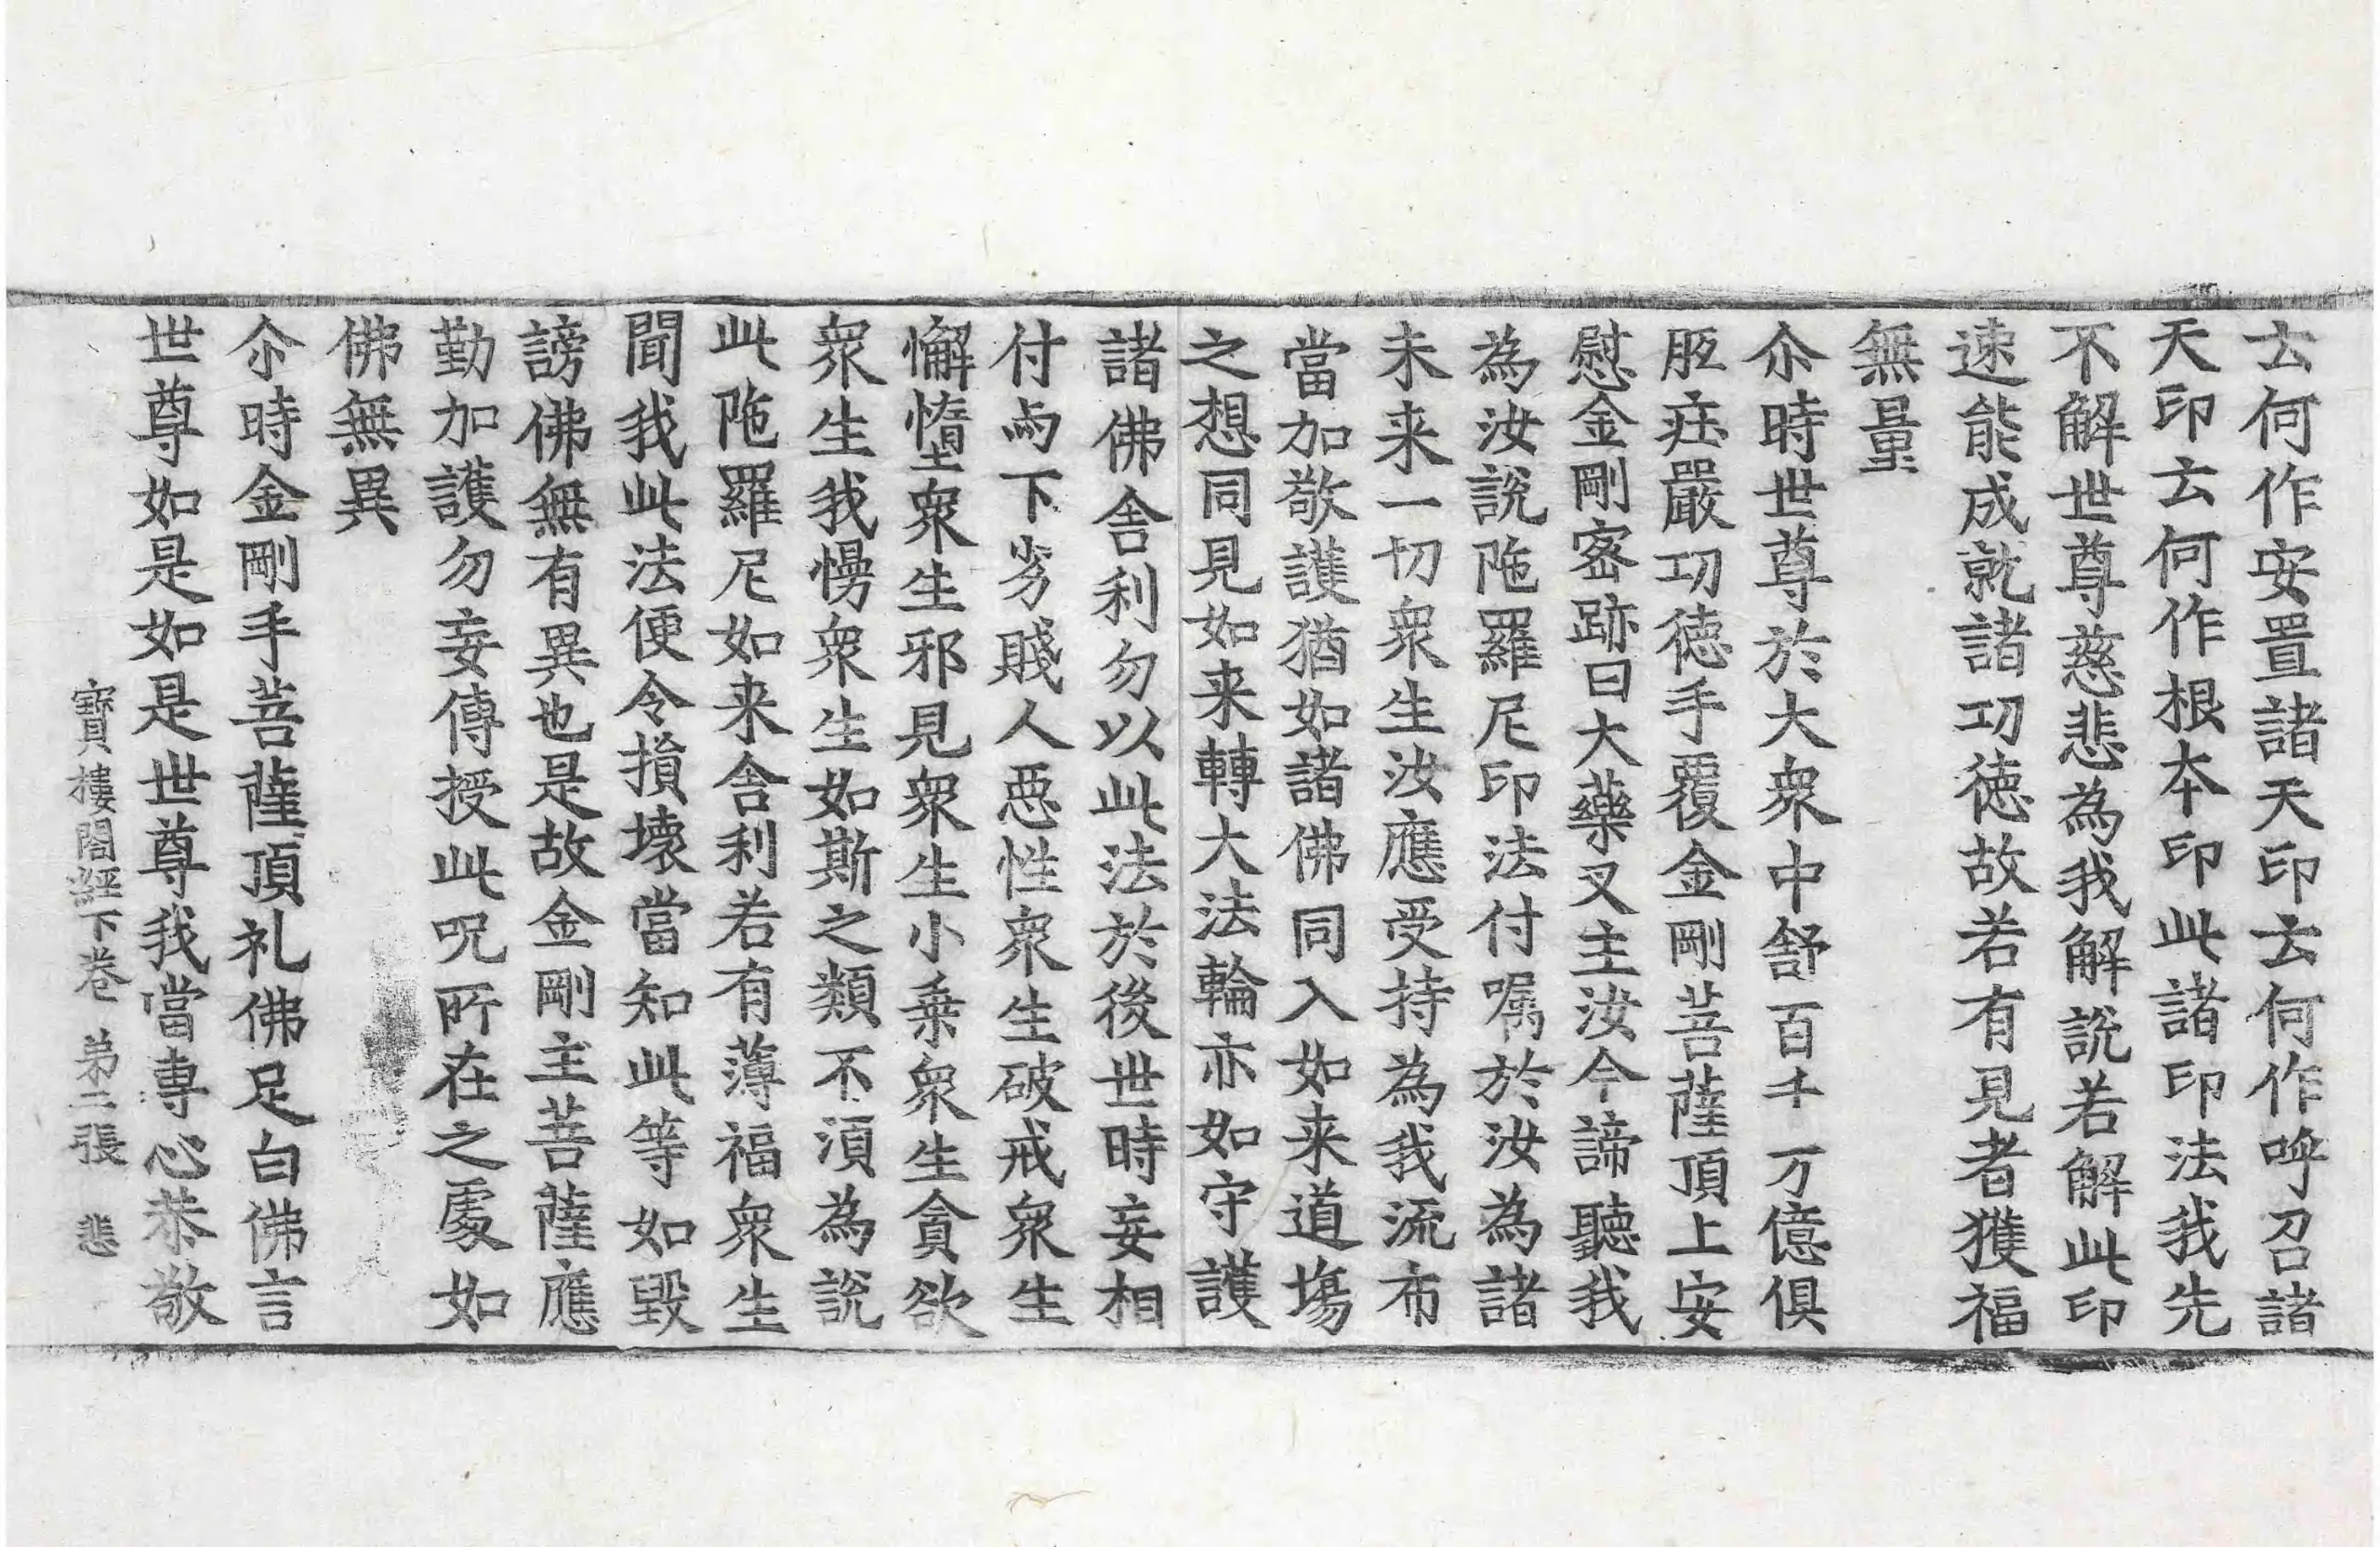 云何作安置諸天印云何作呼召諸
天印云何作根本印此諸印法我先
不解世尊慈悲為我解說若解此印
速能成就諸功徳故若有見者獲福
無量
尒時世尊於大衆中舒百千万億俱
胝莊嚴功徳手覆金剛菩薩頂上安
慰金剛密跡曰大藥叉主汝今諦聽我
為汝說陁羅尼印法付嘱於汝為諸
未来一切衆生汝應受持為我流布
當加敬護猶如諸佛同入如来道場
之想同見如来轉大法輪亦如守護
諸佛舎利勿以此法於後世時妄相
付与下劣賤人惡性衆生破戒衆生
懈墮衆生邪見衆生小乗衆生貪欲
衆生我慢衆生如斯之類不湏為說
此陁羅尼如来舎利若有薄福衆生
聞我此法便令損壞當知此等如毀
謗佛無有異也是故金剛主菩薩應
勤加護勿妄傳授此呪所在之處如
佛無異
尒時金剛手菩薩頂礼佛足白佛言
世尊如是如是世尊我當專心恭敬
寶樓閣經下卷 苐二張 悲